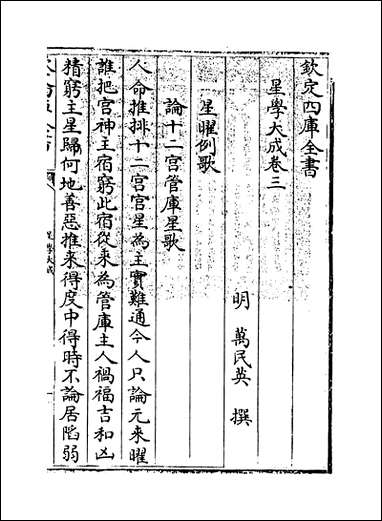 欽定四庫全書
星學大成卷三
明 萬民英 撰
星曜例歌
論十二宮管庫星歌
人命推排十二宮宮星為主實難通今人只論元來曜
誰把宮神主宿窮此宿從來為管庫主人禍福吉和凶
精窮主星歸何地善惡推來得度中得時不論居陷弱
星學大成